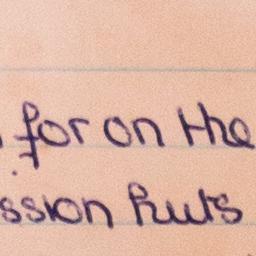 for on the
ssion huts